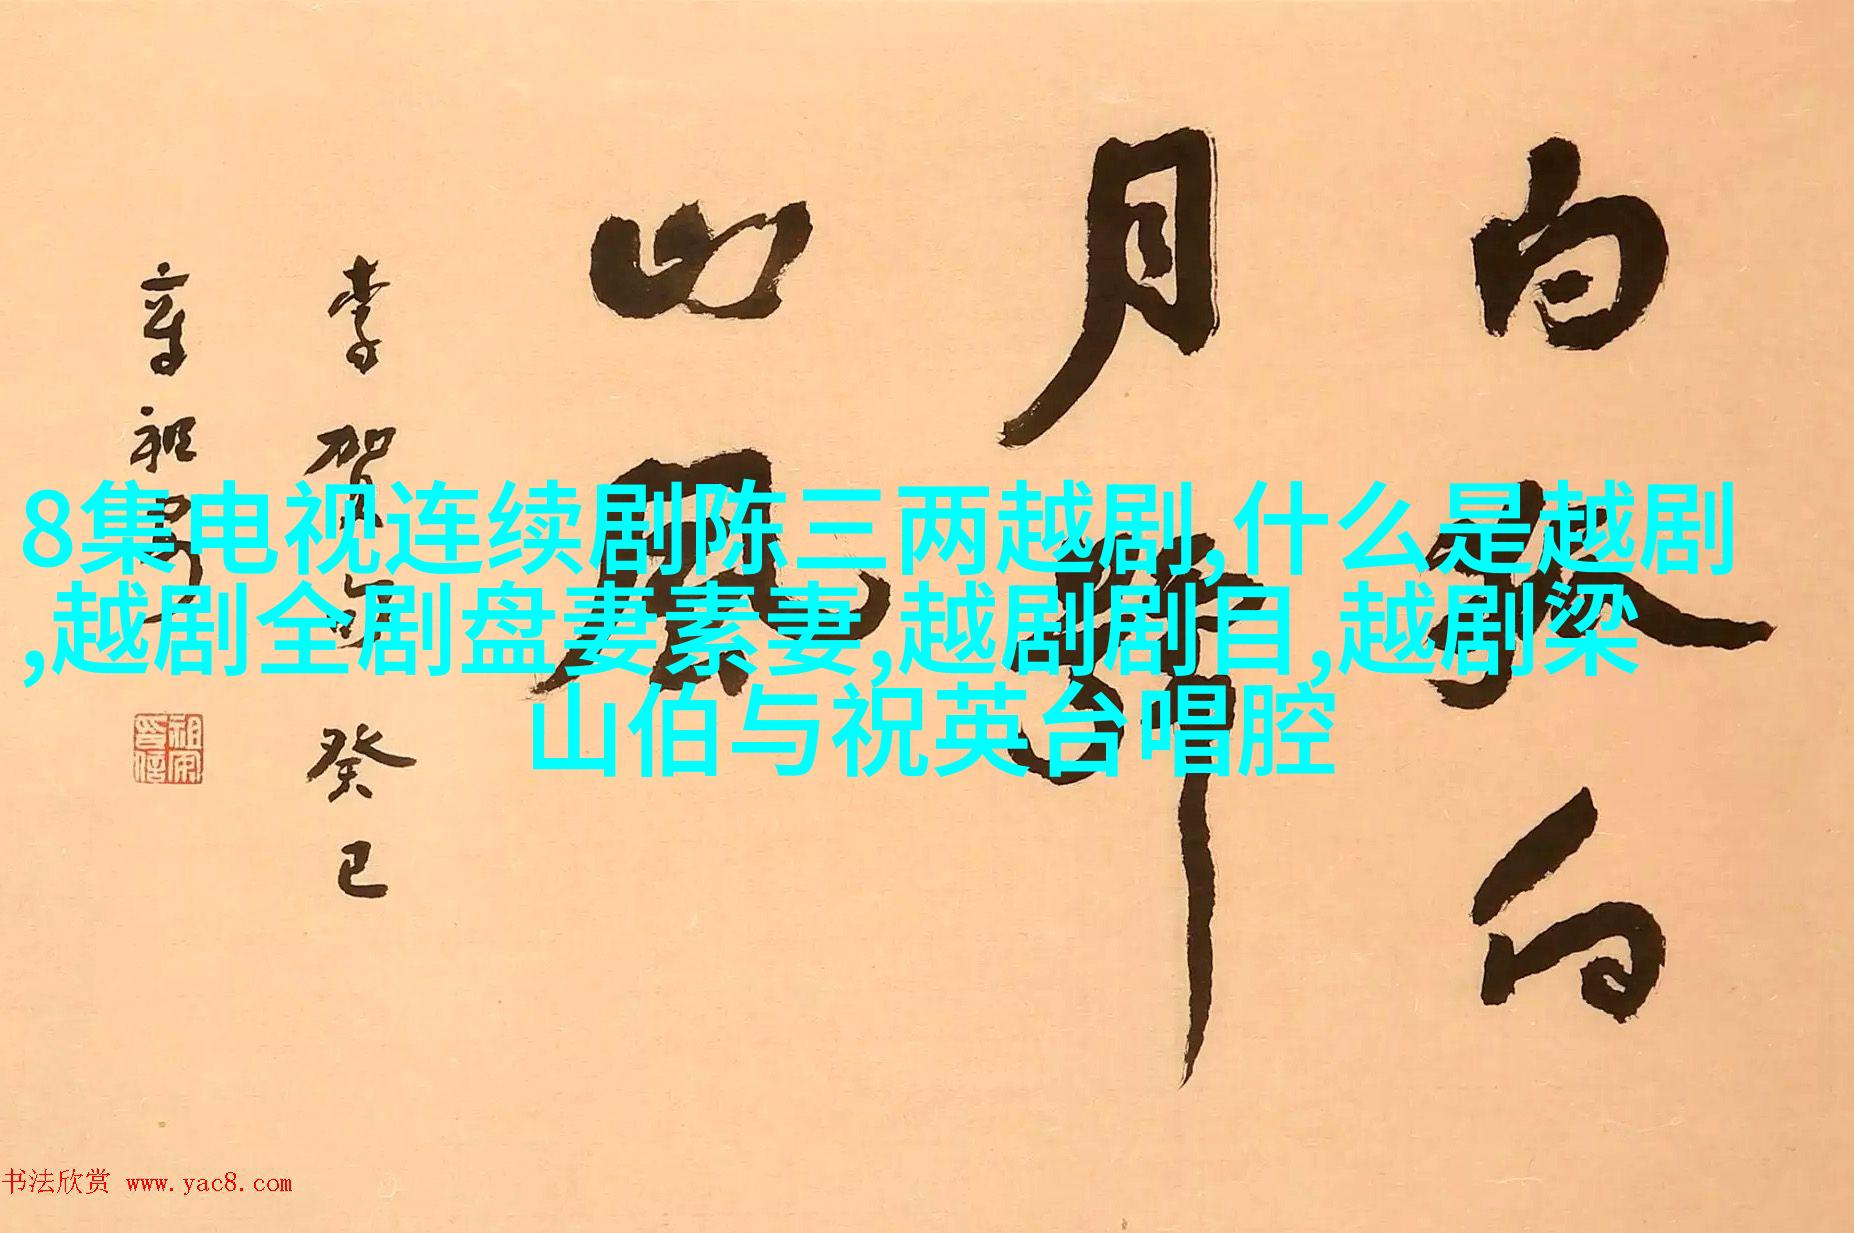 白狐向
月號
山風
李賀句癸巳
章祖安
8集电视连续剧陈三两越剧,什么是越剧
,越剧全剧盘妻索妻,越剧剧目,越剧梁
山伯与祝英台唱腔
书法欣赏 www.yac8.com